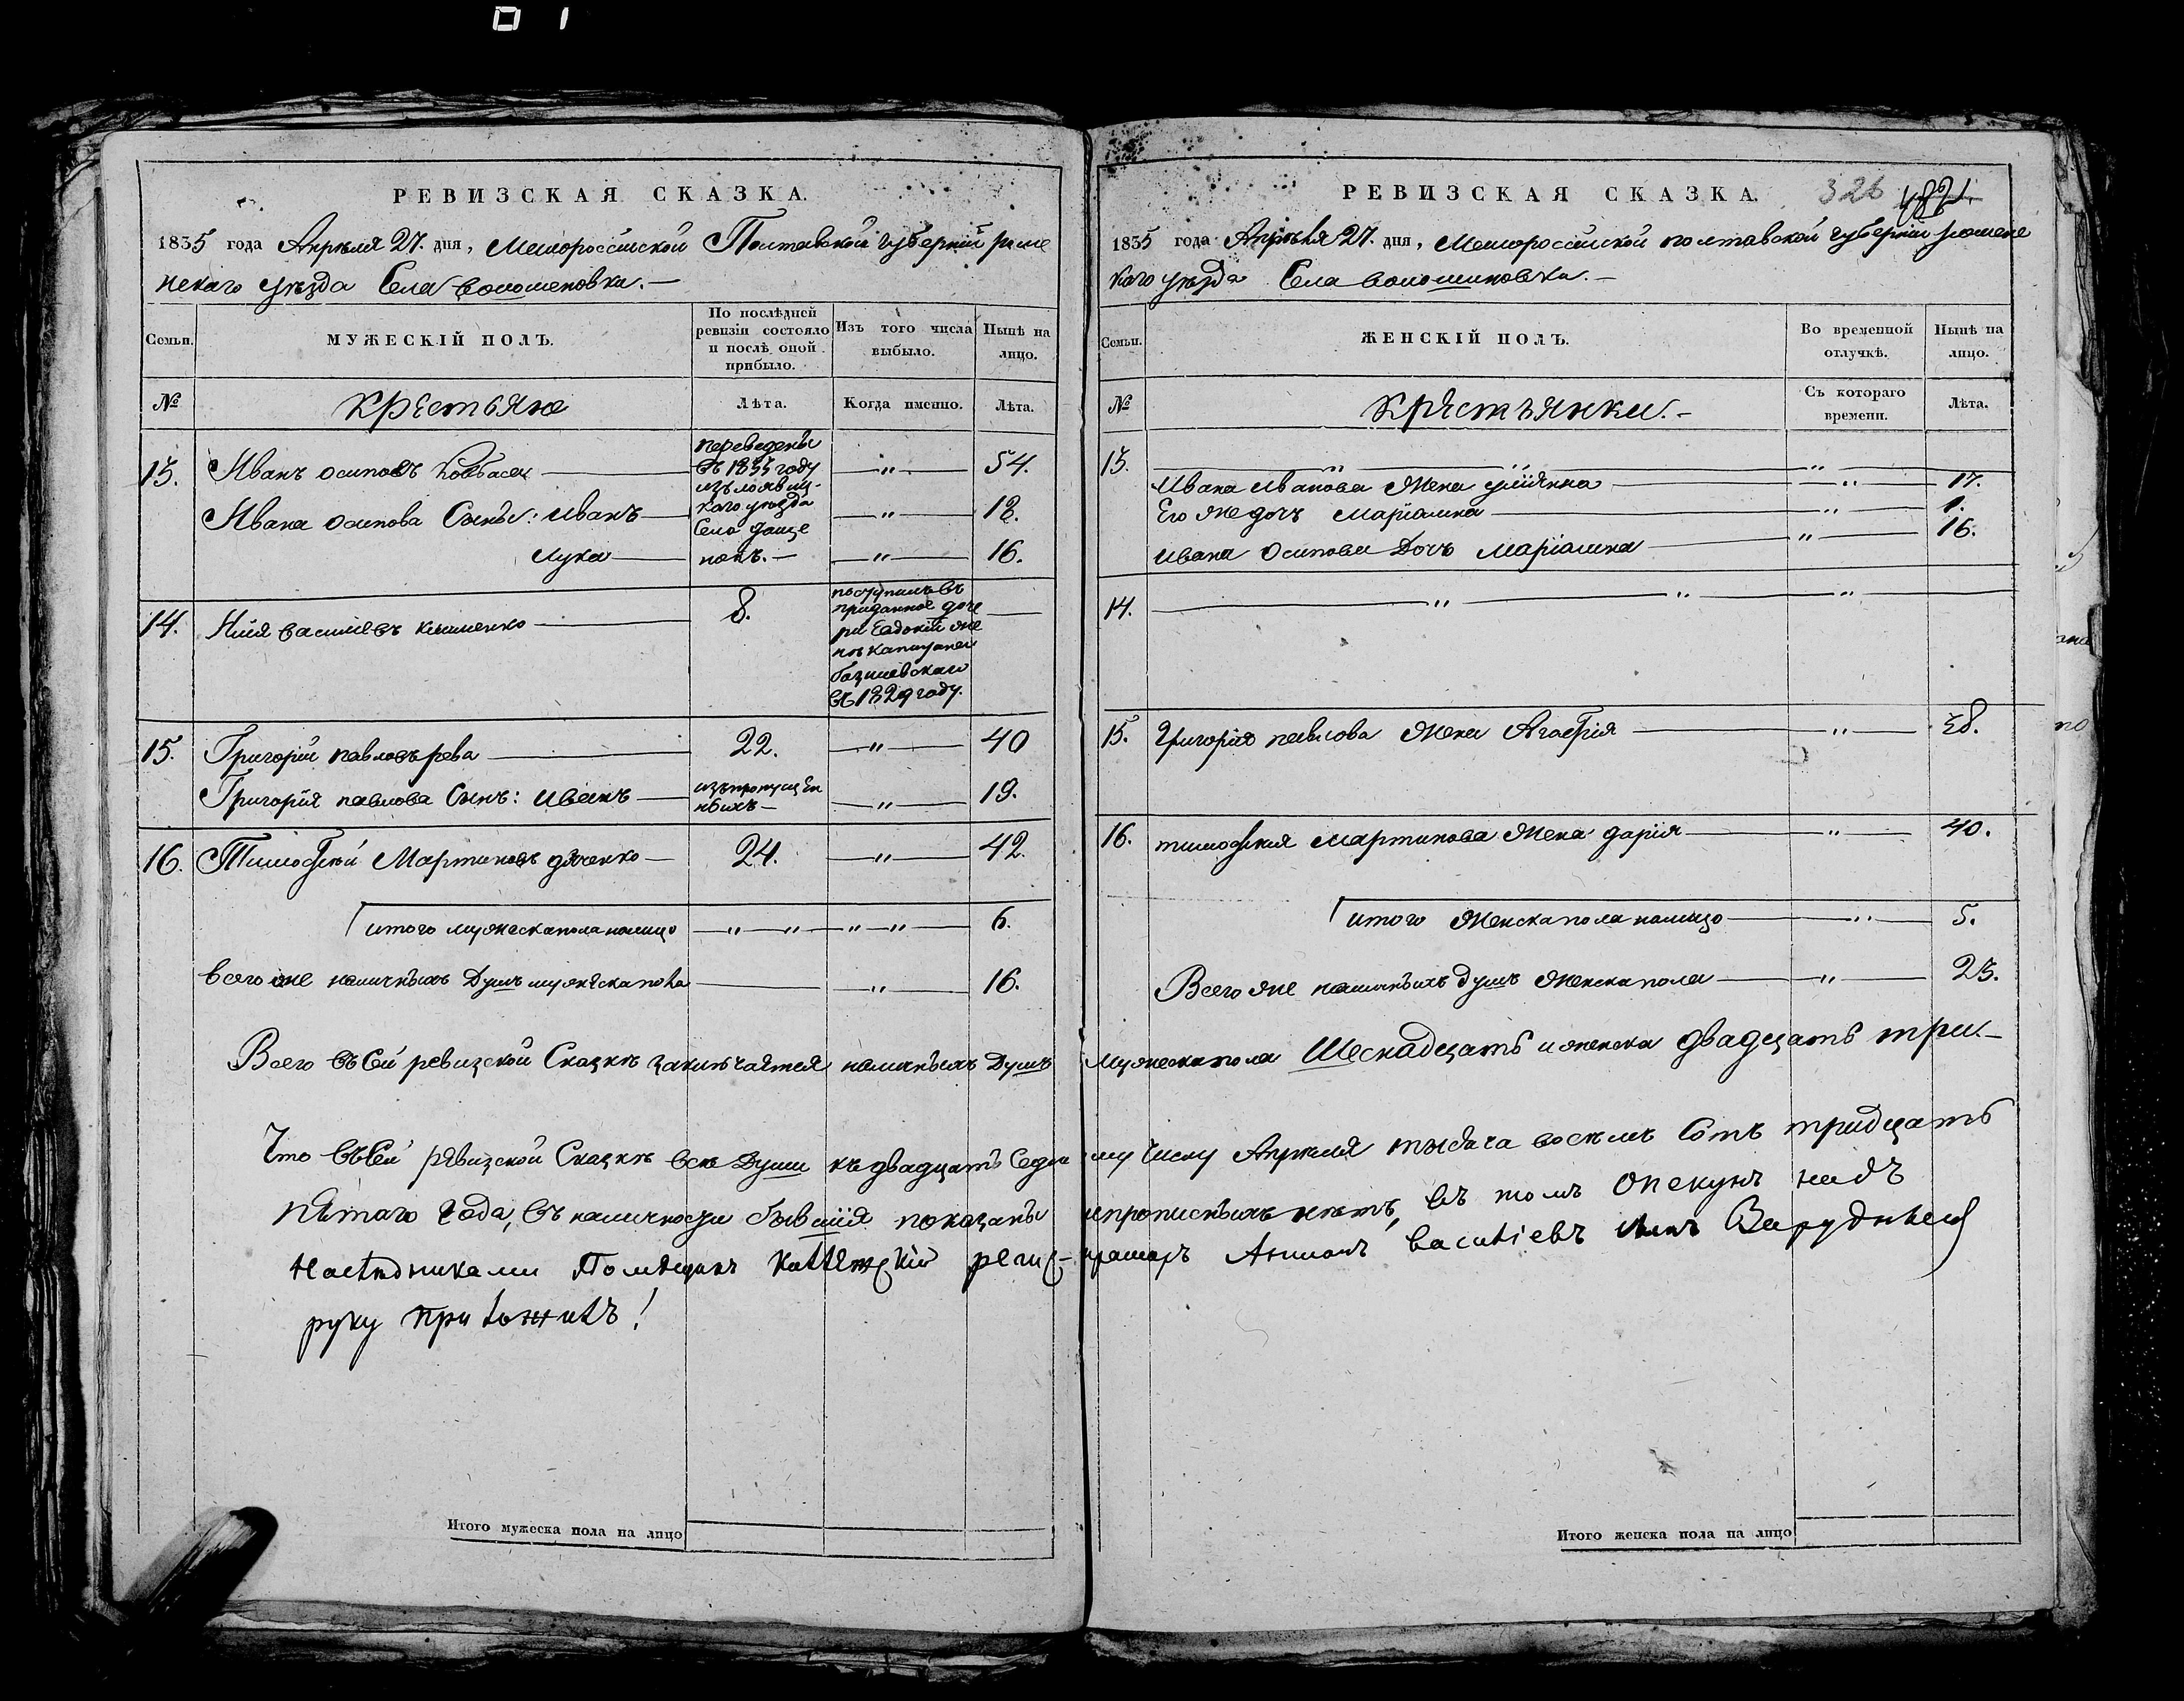 РЕВИЗСКАЯ СКАЗКА.
1835 года Апреля 27. дня, Малороссійской Полтавской Губерніи роме
нскаго уѣзда Села волошиновки.
Семьи.
МУЖЕСКІЙ ПОЛЪ.
По послѣдней ревизіи состояло и послѣ оной прибыло.
Изъ того числа выбыло.
Нынѣ на лицо.
№
крестьяне
Лѣта.
Когда именно.
Лѣта.
13. Иванъ осиповъ Ковбаса
переведены
въ 1833 году
изъ
каго уезда
Села даще
нокъ.
" 54.
Ивана осипова Сыны: иванъ " 18.
лука " 16.
14. Илія васильевъ клименко 8.
поступилъ въ
приданное доче
ри Евдокіи же
нѣ капитана
въ 1829 году.
15. Григорій павловъ рева 22. " 40
Григорія павлова Сынъ: иванъ
изъ пропущен
ныхъ
" 19.
16. Тимофей Мартиновъ дяченко 24. " 42.
итого мужеска пола налицо " " " " 6.
всего же наличныхъ Душъ мужеска пола " 16.
РЕВИЗСКАЯ СКАЗКА.
326
1835 года Апреля 27. дня, Малороссійской полтавской губерніи роменс
каго уезда Села волошиновки.
Семьи.
ЖЕНСКІЙ ПОЛЪ.
Во временной отлучкѣ.
Нынѣ на лицо.
№
крестьянки.
Съ котораго времени.
Лѣта.
13. " " "
ивана иванова Жена уліянна " 17.
Его же дочь маріамна " 1.
ивана осипова Дочь маріамна " 16.
14. " " "
15. Григорія павлова Жена Агафія " 38.
16. тимофея мартинова Жена дарія " 40.
итого Женска пола налицо " 5.
Всего же наличныхъ душъ женска пола " 23.
Всего въ Сей ревизской Сказкѣ заключается наличныхъ Душъ мужеска пола Шеснадцать и женска двадцать три.
Что въ Сей ревизской Сказкѣ всѣ души къ двадцать Седьмому Числу Апреля тысяча восемъ Сотъ тридцать
пятаго года, въ наличности бывшія показаны и прописныхъ нетъ, въ томъ опекунъ надъ
наследниками Помещикъ коллежскій регистраторъ васильевъ сынъ Зарудный
руку приложилъ!
Итого мужеска пола на лицо
Итого женска пола на лицо